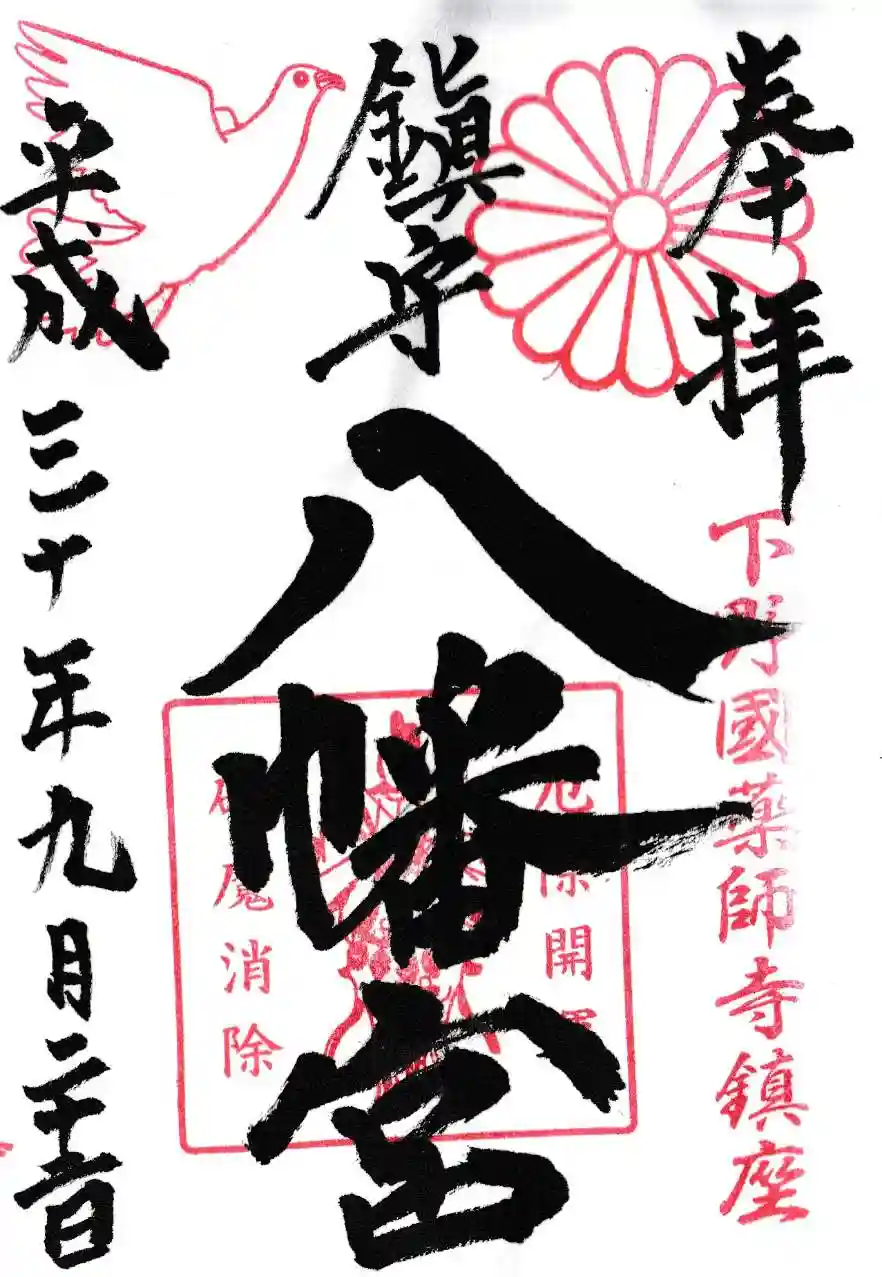 奉拝
下野國藥師寺鎮座
鎭守
八幡宮
厄除開運
破魔消除
平成三十年九月二十日